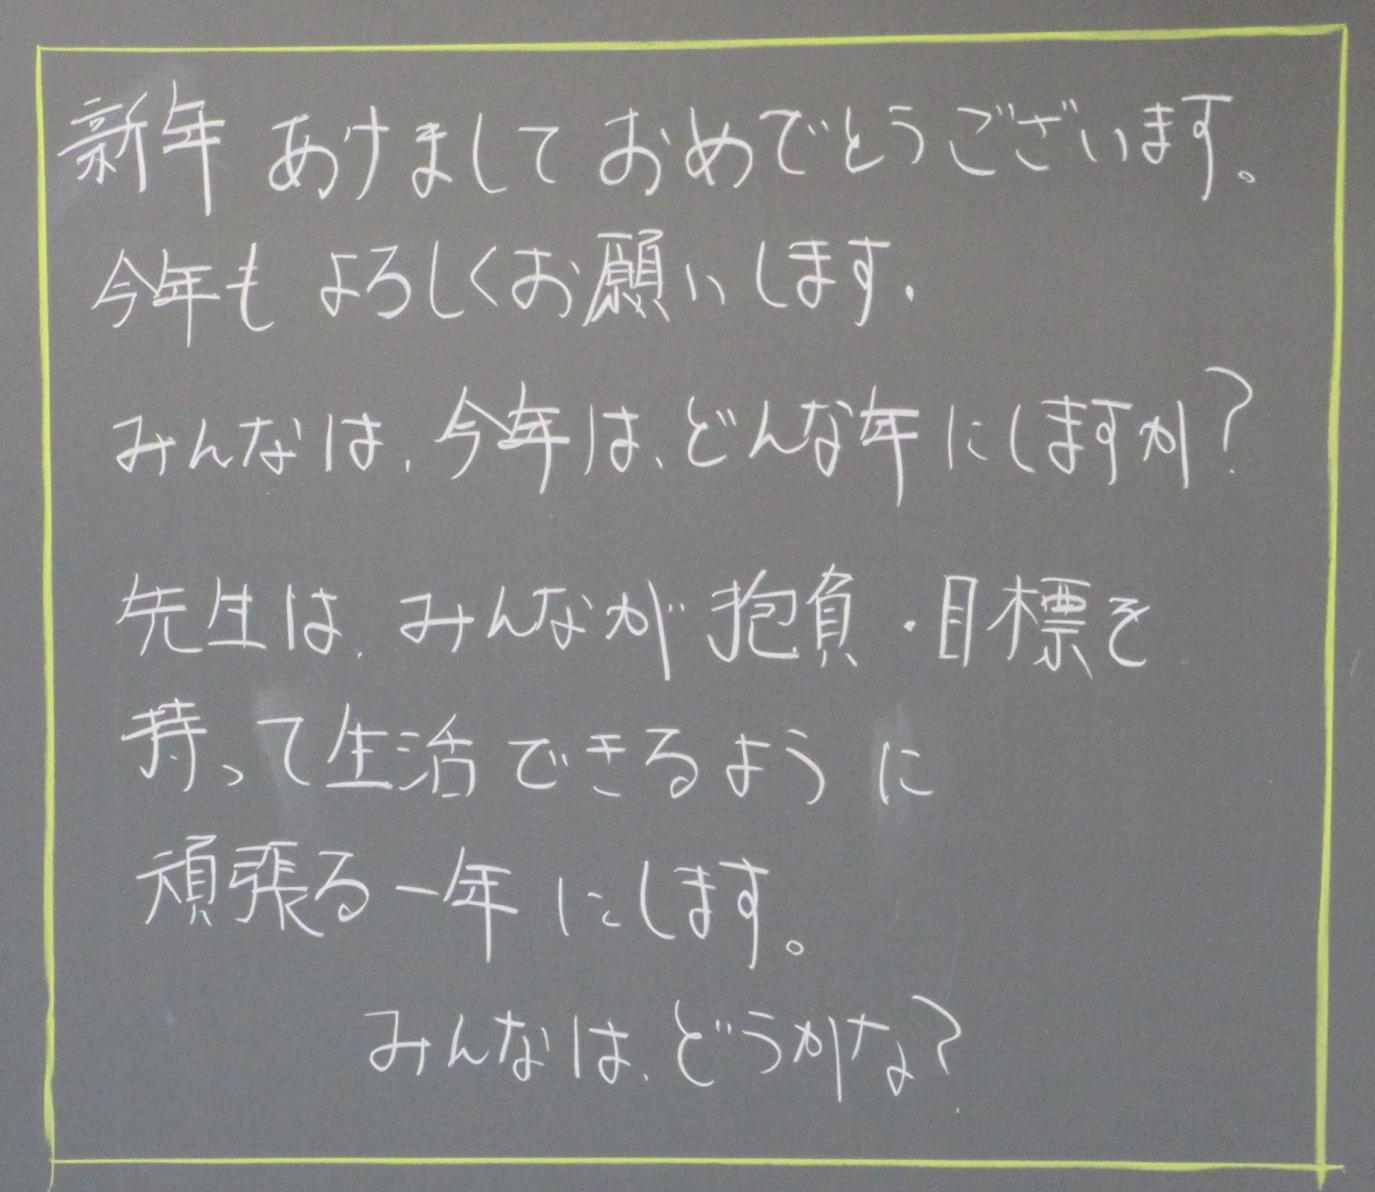 新年 あけまして おめでとうございます。
今年も よろしくお願いします.
みんなは、今年は、どんな年にしますか?
先生は、みんなが抱負・目標を
持って生活できるように
頑張る一年にします。
みんなは、どうかな?